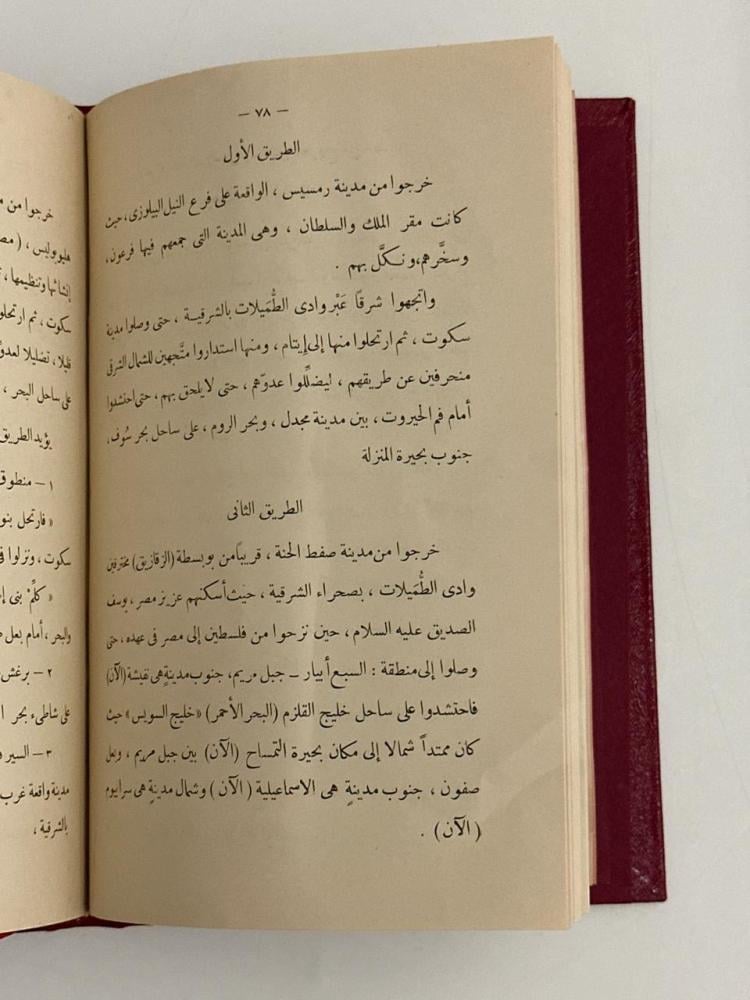 — ٧٨ —
الطريق الأول
خرجوا من مدينة رمسيس ، الواقعة على فرع النيل البيلوزى، حيث
كانت مقر الملك والسلطان ، وهى المدينة التى جمعهم فيها فرعون،
وسخَّرهم، ونكَّل بهم .
واتجهوا شرقًا عَبْر وادى الطُّمَيلات بالشرقيـة ، حتى وصلوا مدينة
سكوت ، ثم ارتحلوا منها إلى إيثام ، ومنها استداروا متَّجهين للشمال الشرقى
منحرفين عن طريقهم ، ليضلِّلوا عدوّهم ، حتى لا يلحق بهم ، حتى احتشدوا
أمام فم الحيروت ، بين مدينة مجدل ، وبحر الروم ، على ساحل بحر سُوف ،
جنوب بحيرة المنزلة
الطريق الثانى
خرجوا من مدينة صفط الحنة ، قريبًا من بوبسطة (الزقازيق) مخترقين
وادى الطُّمَيلات ، بصحراء الشرقية ، حيث أسكنهم عزيز مصر ، يوسف
الصديق عليه السلام ، حين نزحوا من فلسطين إلى مصر فى عهده ، حتى
وصلوا إلى منطقة : السبع أبيار ـ جبل مريم، جنوب مدينةٍ هى نفيشة (الآن)
فاحتشدوا على ساحل خليج القلزم (البحر الأحمر) «خليج السويس» حيث
كان ممتداً شمالا إلى مكان بحيرة التمساح (الآن) بين جبل مريم ، وبعل
صفون ، جنوب مدينةٍ هى الاسماعيلية (الآن) وشمال مدينةٍ هى سرابيوم
(الآن) .
خرجوا من
هليوبوليس ، (
إنشائها وتنظيمها ،
سكوت ، ثم ارتحلوا
قليلا ، تضليلا
على ساحل البحر ،
يؤيد الطريق
١ — منطوق
« فارتحل بنو
سكوت ، ونزلوا
« كلِّمْ بنى
والبحر ، أمام بعل
٢ —
على شاطىء بحر
٣ — السير
مدينة واقعة غرب
بالشرقية ،